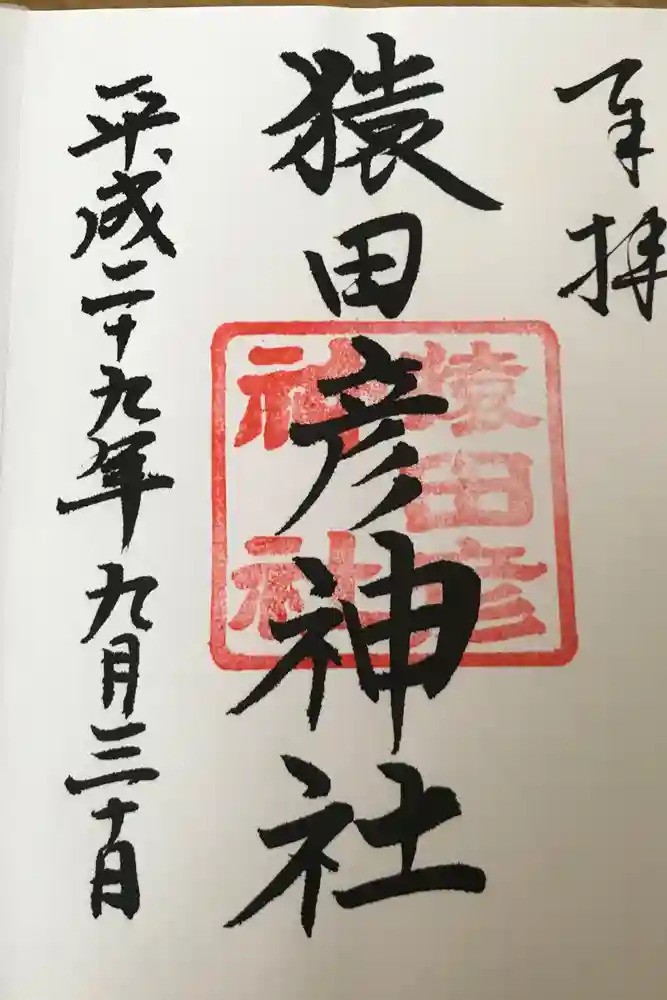 奉拝
猿田彦神社
猿田彦
神社
平成二十九年九月三十日